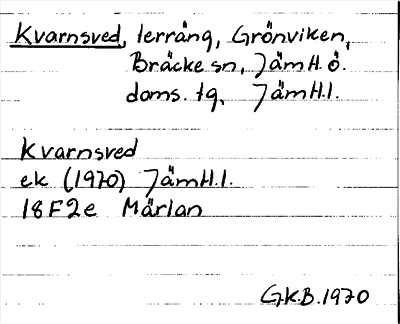 Kvarnsved, terräng, Grönviken,
Bräcke sn, Jämtl. ö.
doms. tg, Jämtl.l.
Kvarnsved
ek (1970) Jämtl.l.
18F2e Märlan
G.K.B. 1970